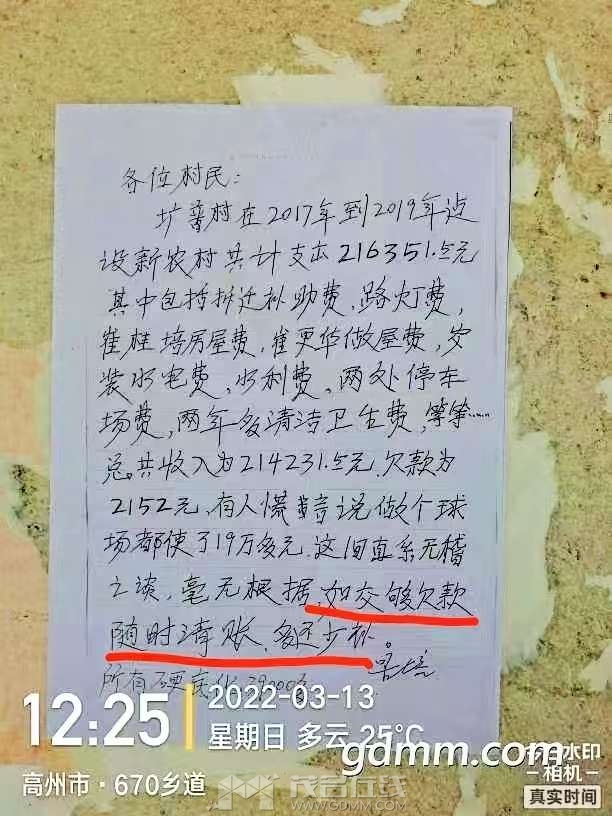 各位村民:
扩 村在2017年到2019年边
设新农村共计支出216351.5元
其中包括拆迁补助费,路灯费,
崔桂培房屋费,崔 华做屋费,安
装水电费,水利费,两处停车
场费,两年多清洁卫生费,等等......
总共收入为214231.5元.欠款为
2152元,有人慌 说做个球
场都使了19万多元.这间直系无稽
之谈,毫无根据,如交够欠款
随时清账,多还少补。
所有硬底化
12:25
2022-03-13
星期日 多云 25°C
高州市·670乡道
gdmm.com
水印
相机
真实时间
茂名在线
WWW.GDMM.COM